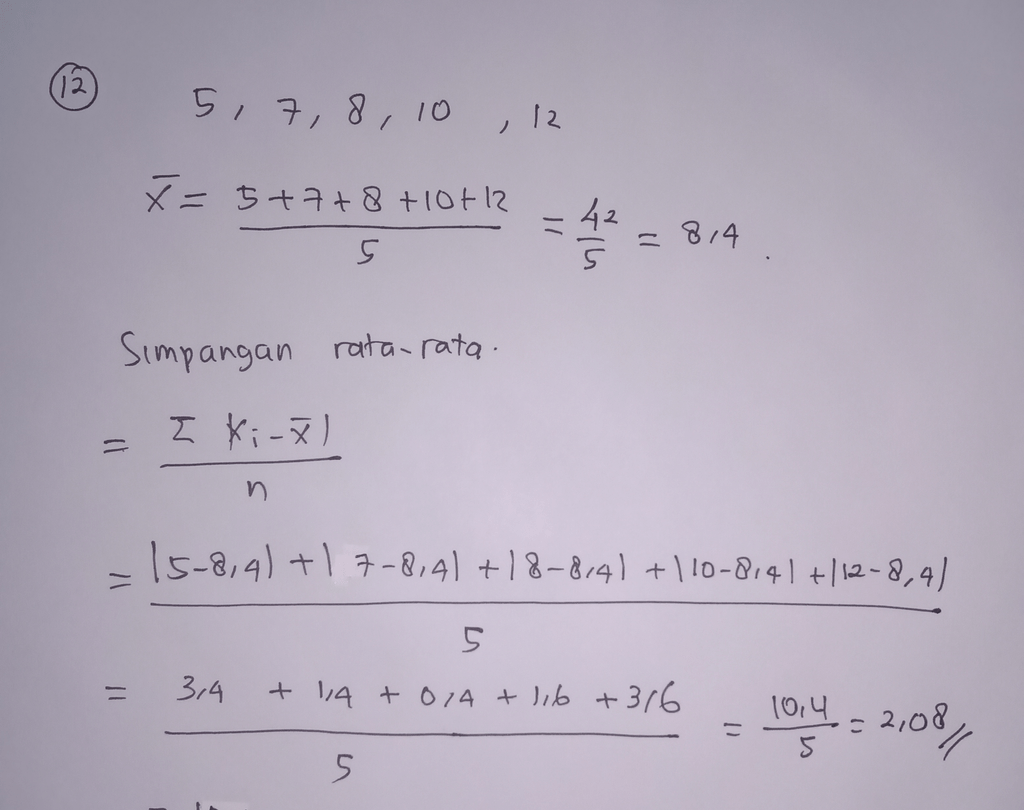 12
5, 7, 8, 10, 12
x̄ = 5+7+8+10+12 / 5 = 42/5 = 8,4.
Simpangan rata-rata.
= Σ |xi-x̄| / n
= |5-8,4| + |7-8,4| + |8-8,4| + |10-8,4| + |12-8,4| / 5
= 3,4 + 1,4 + 0,4 + 1,6 + 3,6 / 5 = 10,4/5 = 2,08//